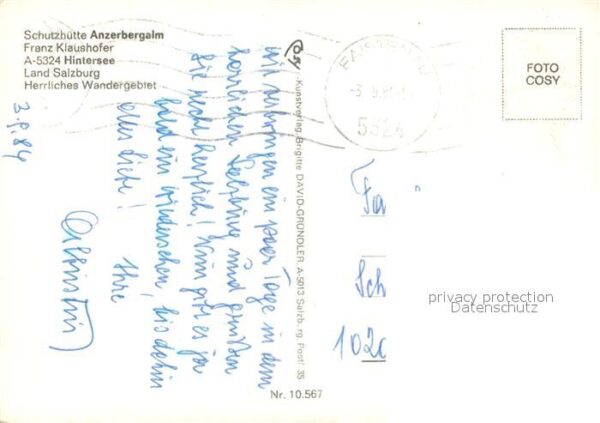 Schutzhütte Anzerbergalm
Franz Klaushofer
A-5324 Hintersee
Land Salzburg
Herrliches Wandergebiet
3.9.84
wir verbringen ein paar Tage in dem
herrlichen Salzburg und grüßen
Sie recht herzlich! Nun gibt es ja
bald ein Wiedersehen, bis dahin
alles Liebe!
Ihre
Kunstverlag Brigitte DAVID-GRÜNDLER, A-5013 Salzb.rg, Postf. 35
Nr. 10.567
FAISTENAU
5324
FOTO
COSY
Fa
Sch
1020
privacy protection
Datenschutz